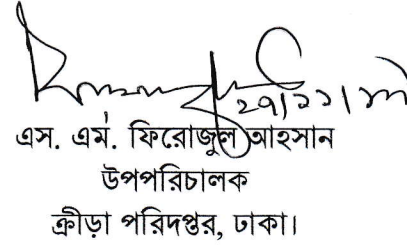 ২৭/১১/১৮
এস. এম. ফিরোজুল আহসান
উপপরিচালক
ক্রীড়া পরিদপ্তর, ঢাকা।